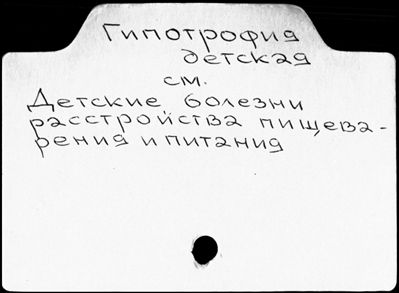 Гипотрофия
детская
см.
Детские болезни
расстройства пищева-
рения и питания